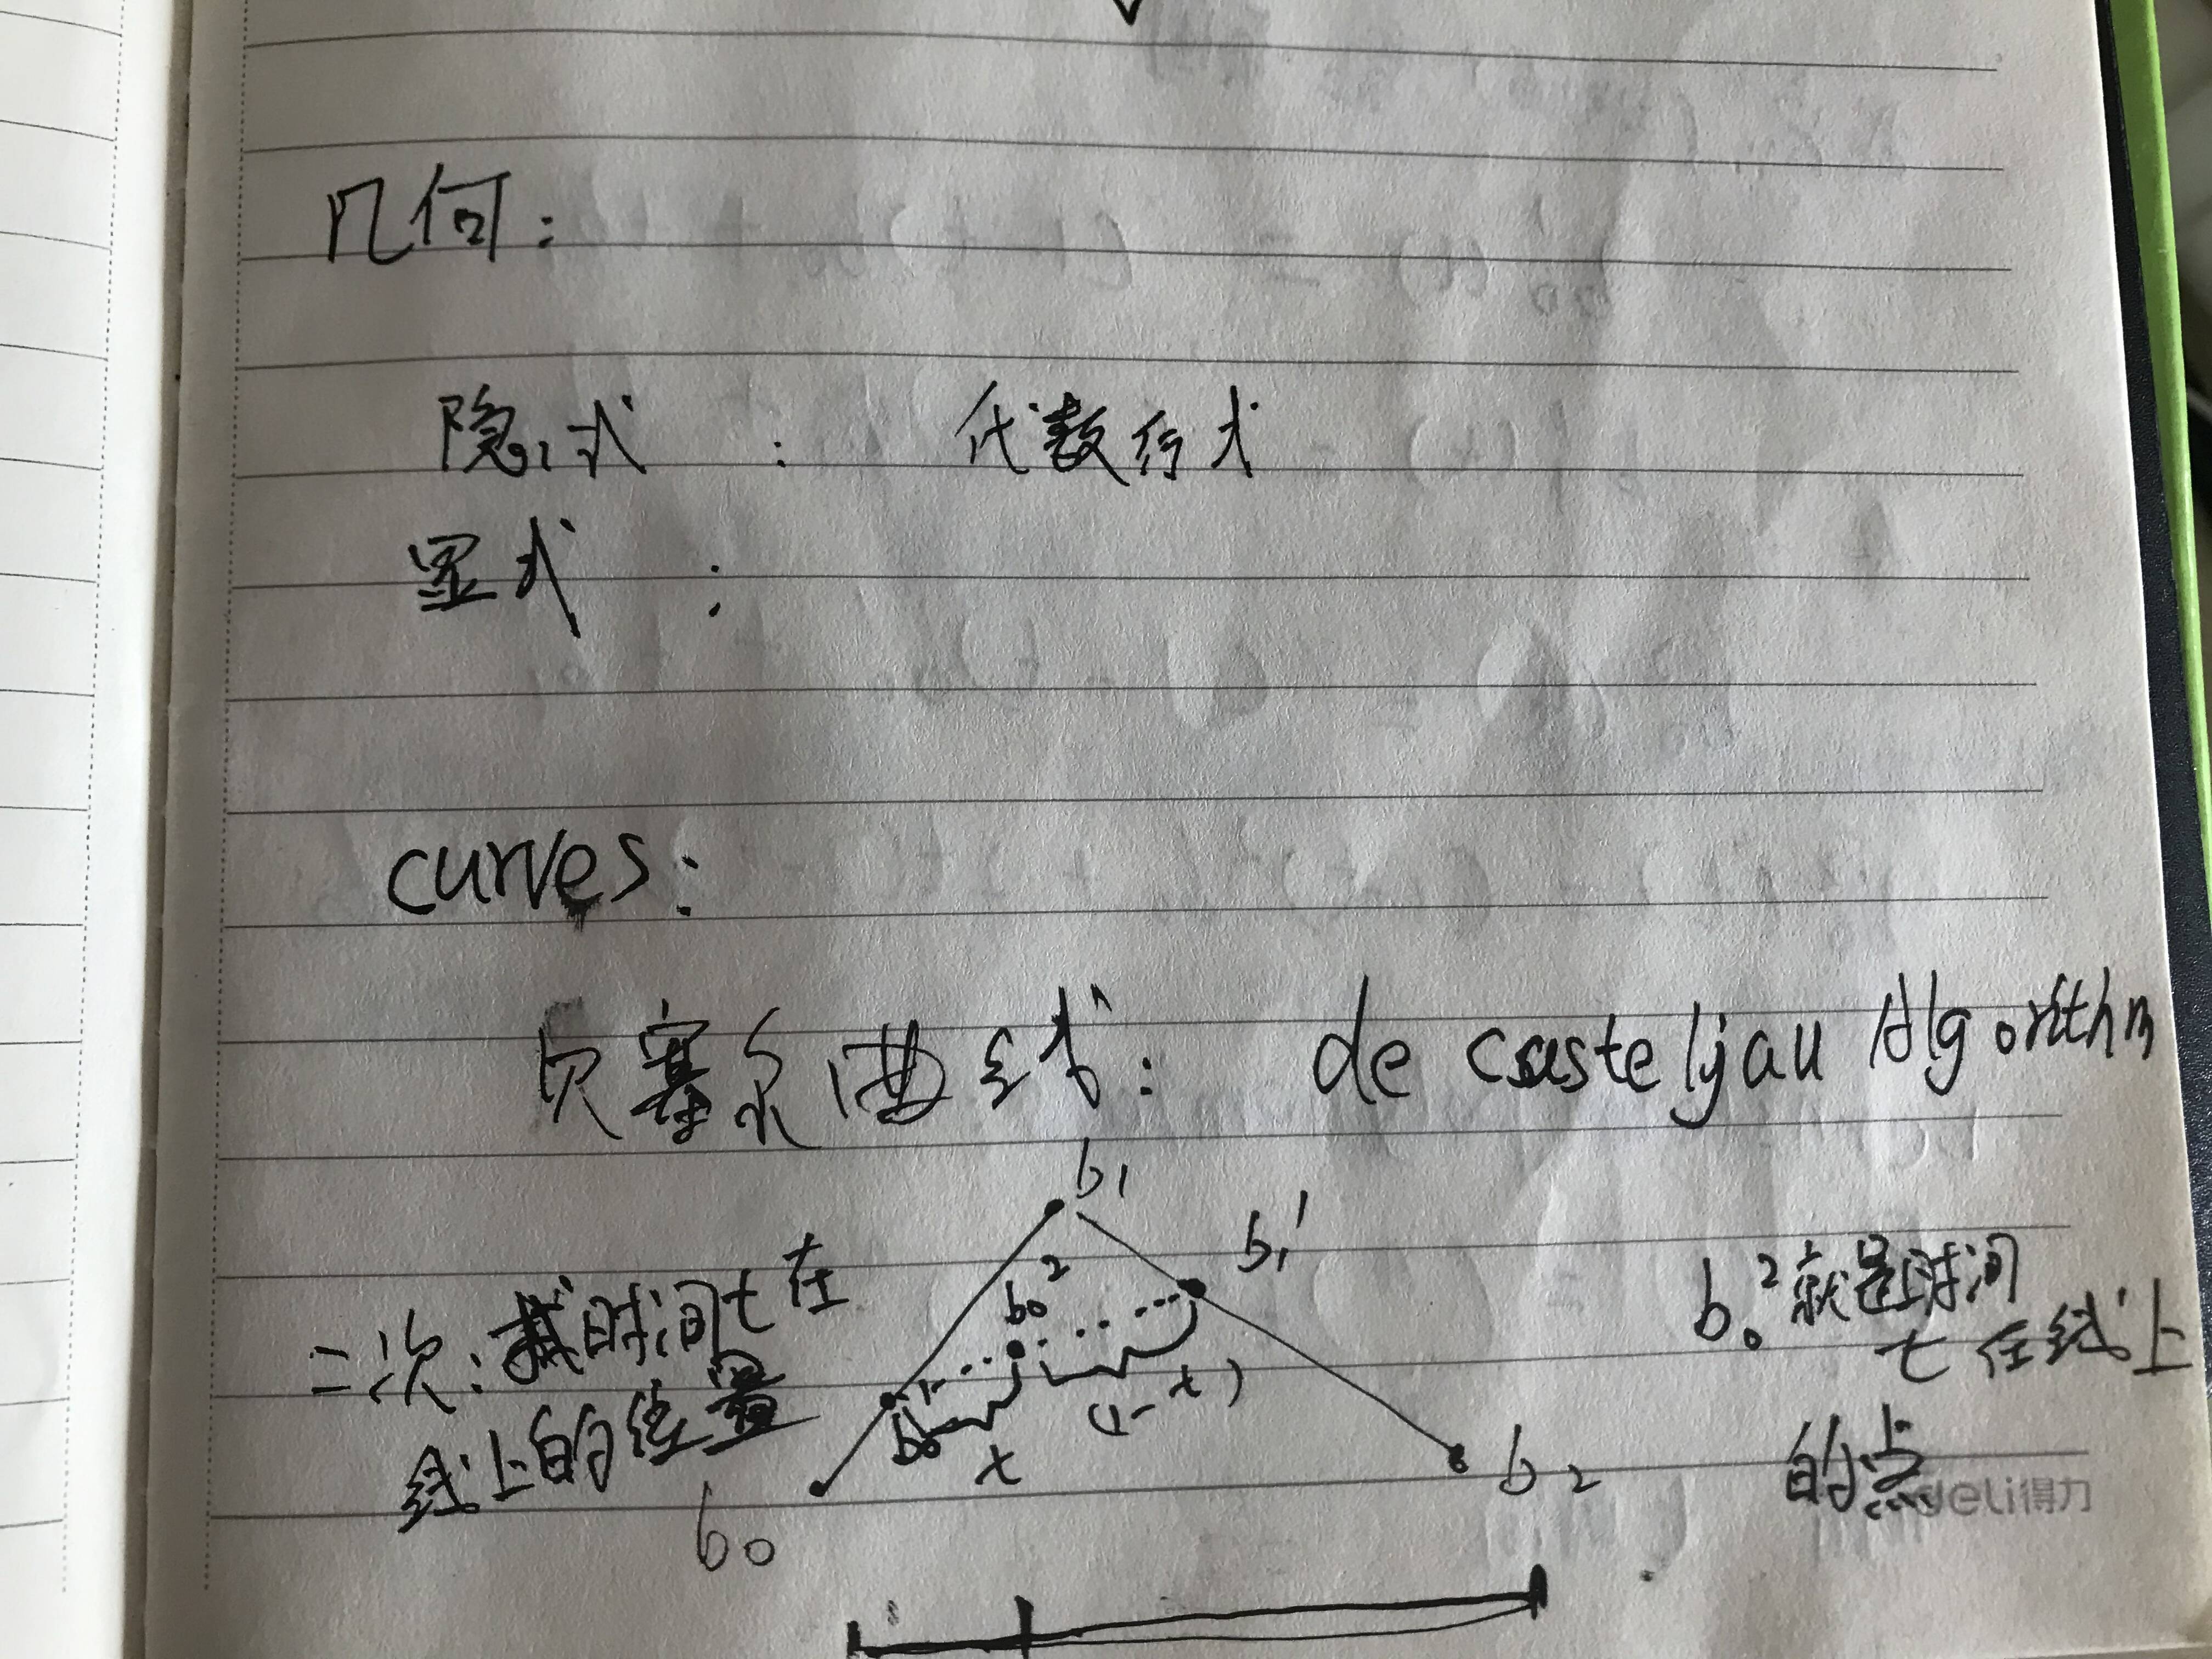 几何:
隐式 : 代数行式
显式 :
curves:
贝塞尔曲线: de casteljau Algorithm
b₁
b₁¹
b₀²
二次: 找时间t在
线上的位置
b₀
t
(1-t)
b₀
b₂
b₀²就是时间
t在线上
的点
deli得力